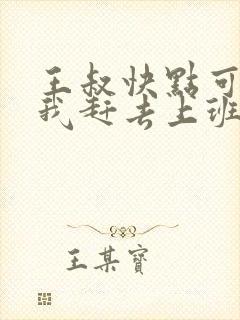 王叔快點可
我赶去上班
王某寶